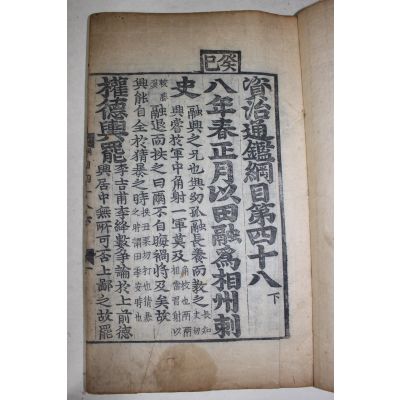 癸巳
資治通鑑綱目第四十八 下
八年春正月以田融爲相州刺
史
融興之兄也興幼孤融長養而教之
興嘗於軍中角射一軍莫及
融退而抶之曰爾不自晦禍將及矣故
興能自全於猜暴之時
權德輿罷
李吉甫李絳數爭論於上前德
輿居中無所可否上鄙之故罷